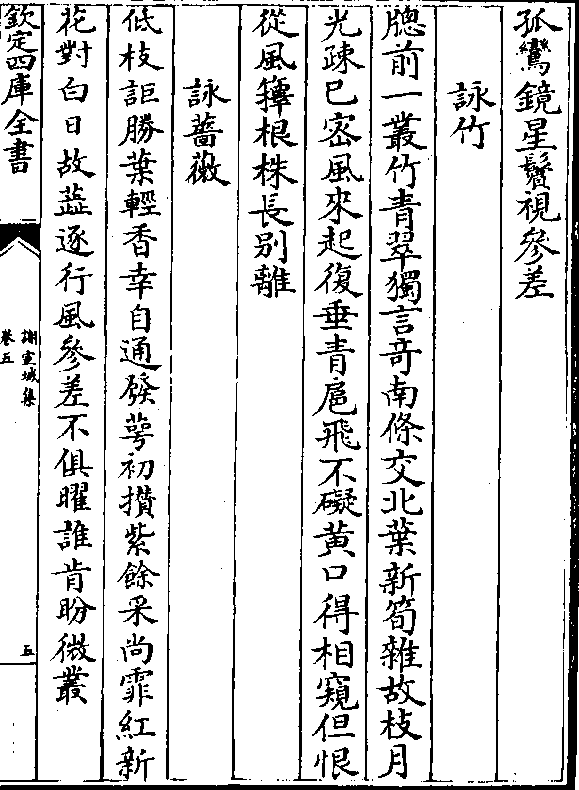 孤鸞鏡星鬢視參差
詠竹
牕前一叢竹青翠獨言竒南條交北葉新筍雜故枝月
光疎已宻風來起復垂青扈飛不礙黃口得相窺但恨
從風籜根株長别離
詠薔薇
低枝詎勝葉輕香幸自通發萼初攢紫餘采尚霏紅新
花對白日故蘂逐行風參差不俱曜誰肯盼微叢
欽定四庫全書
謝宣城集
卷五
五